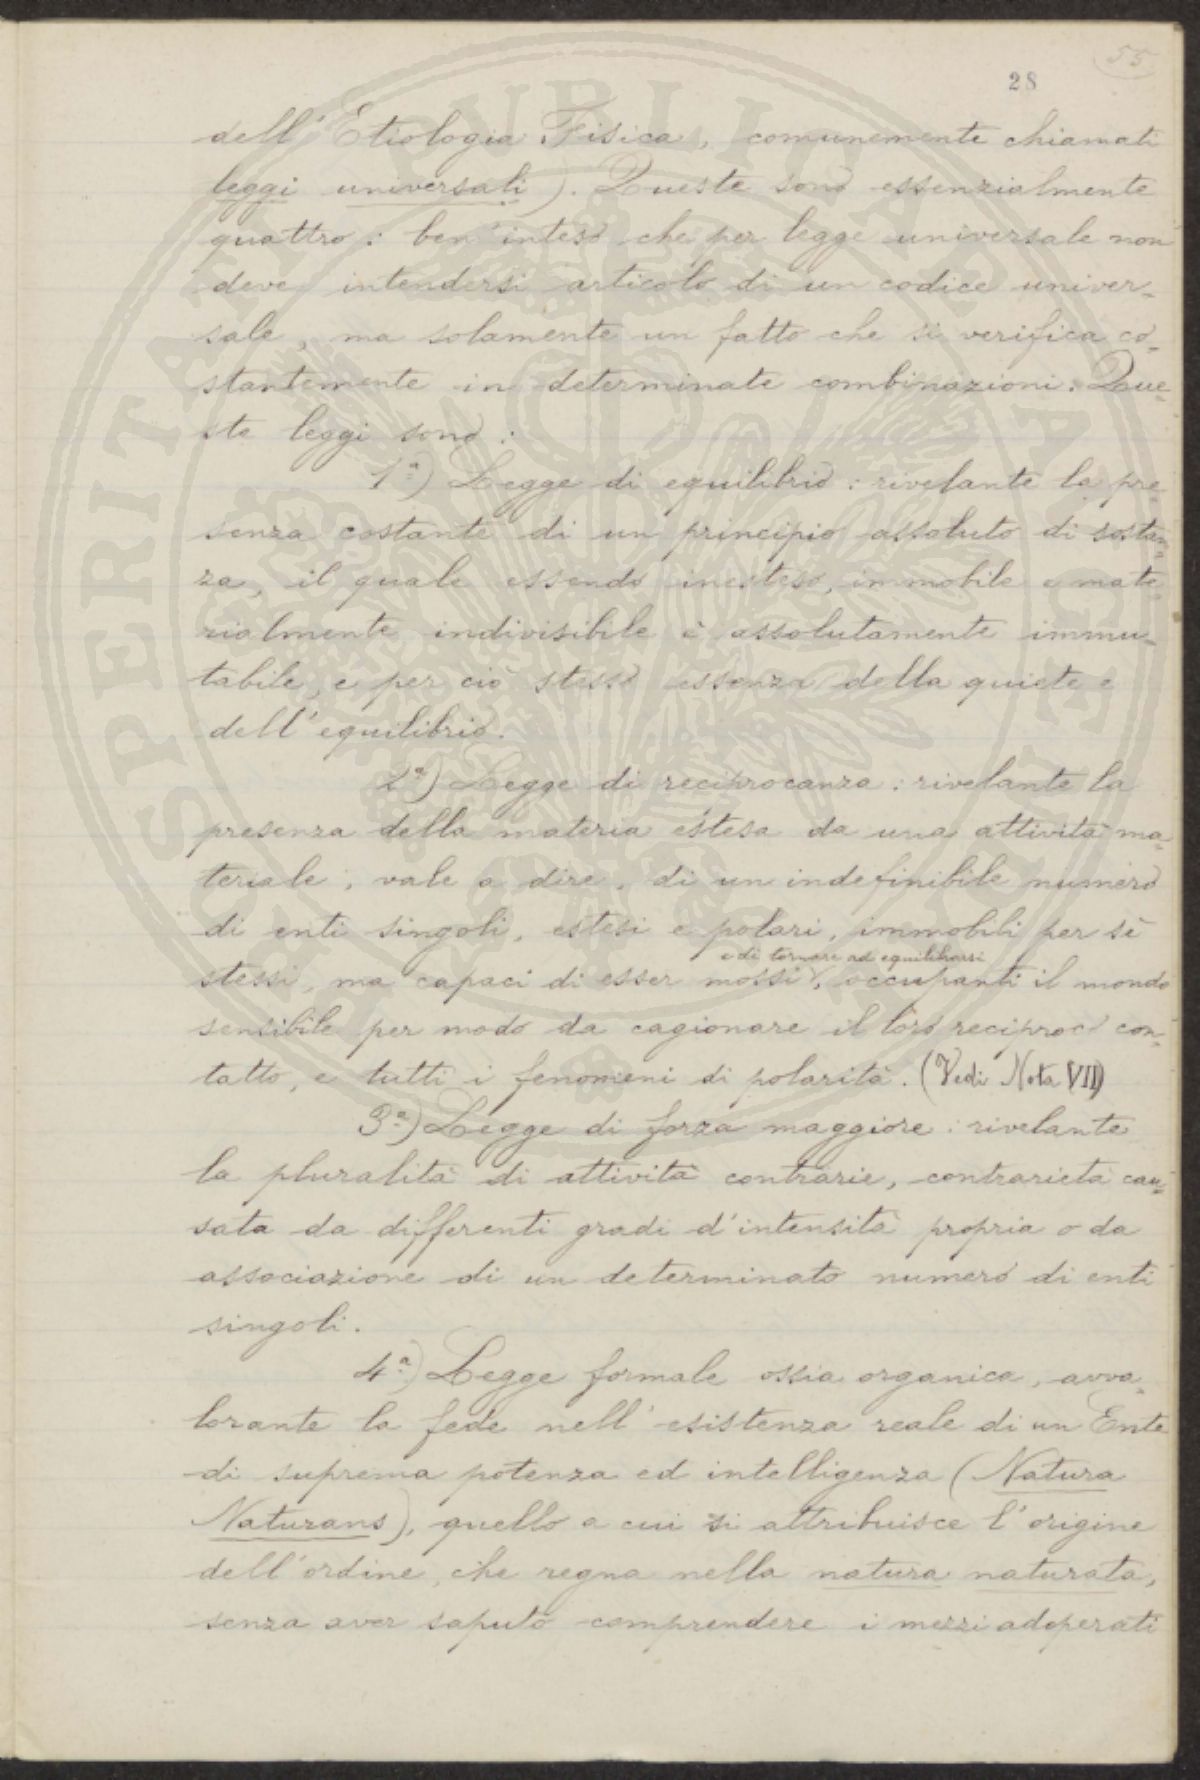 55
28
dell'Etiologia Fisica, comunemente chiamati
leggi universali). Queste sono essenzialmente
quattro: ben inteso che per legge universale non
deve intendersi articolo di un codice univer-
sale, ma solamente un fatto che si verifica co-
stantemente in determinate combinazioni. Que-
ste leggi sono:
1ª) Legge di equilibrio: rivelante la pre-
senza costante di un principio assoluto di sostan-
za, il quale essendo inesteso, immobile e mate-
rialmente indivisibile è assolutamente immu-
tabile, e per ciò stesso essenza della quiete e
dell'equilibrio.
2ª) Legge di reciprocanza: rivelante la
presenza della materia estesa da una attività ma-
teriale, vale a dire, di un indefinibile numero
di enti singoli, estesi e polari, immobili per sè
e di tornare ad equilibrarsi
stessi, ma capaci di esser mossi, occupanti il mondo
sensibile per modo da cagionare il loro reciproco con-
tatto, e tutti i fenomeni di polarità. (Vedi Nota VII)
3ª) Legge di forza maggiore: rivelante
la pluralità di attività contrarie, contrarietà cau-
sata da differenti gradi d'intensità propria o da
associazione di un determinato numero di enti
singoli.
4ª) Legge formale ossia organica, avva-
lorante la fede nell'esistenza reale di un Ente
di suprema potenza ed intelligenza (Natura
Naturans), quello a cui si attribuisce l'origine
dell'ordine, che regna nella natura naturata,
senza aver saputo comprendere i mezzi adoperati